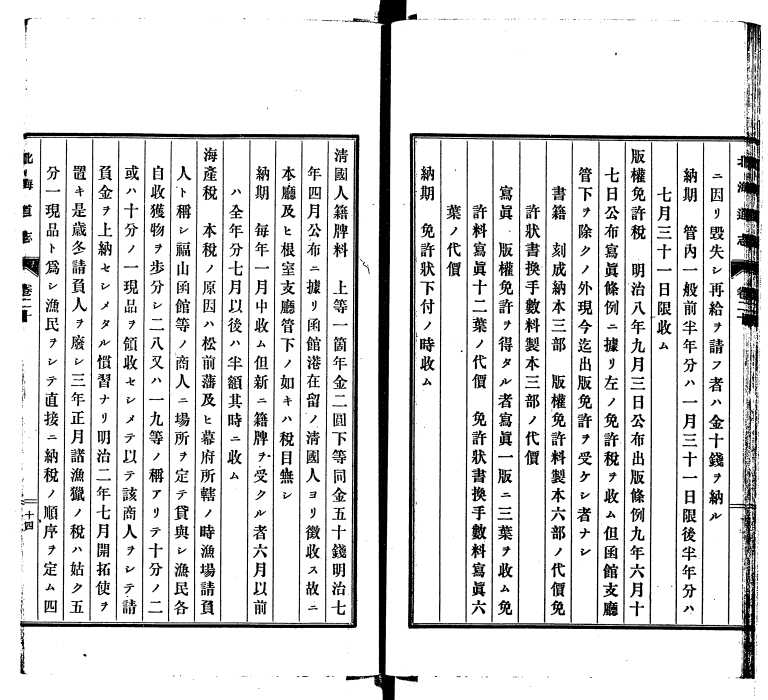 北海道志 卷二十
ニ因リ毀失シ再給ヲ請フ者ハ金十錢ヲ納ル
納期 管內一般前半年分ハ一月三十一日限後半年分ハ
七月三十一日限收ム
版權免許税 明治八年九月三日公布出版條例九年六月十
七日公布寫眞條例ニ據リ左ノ免許税ヲ收ム但函館支廳
管下ヲ除クノ外現今迄出版免許ヲ受ケシ者ナシ
書籍 刻成納本三部 版權免許料製本六部ノ代價免
許狀書換手數料製本三部ノ代價
寫眞 版權免許ヲ得タル者寫眞一版ニ三葉ヲ收ム免
許料寫眞十二葉ノ代價 免許狀書換手數料寫眞六
葉ノ代價
納期 免許狀下付ノ時收ム
淸國人籍牌料 上等一箇年金二圓下等同金五十錢明治七
年四月公布ニ據リ函館港在留ノ淸國人ヨリ徵收ス故ニ
本廳及ヒ根室支廳管下ノ如キハ税目無シ
納期 每年一月中收ム但新ニ籍牌ヲ受クル者六月以前
ハ全年分七月以後ハ半額其時ニ收ム
海產税 本税ノ原因ハ松前藩及ヒ幕府所轄ノ時漁場請負
人ト稱シ福山函館等ノ商人ニ場所ヲ定テ貸與シ漁民各
自收獲物ヲ步分シ二八又ハ一九等ノ稱アリテ十分ノ二
或ハ十分ノ一現品ヲ領收セシメテ以テ該商人ヲシテ請
負金ヲ上納セシメタル慣習ナリ明治二年七月開拓使ヲ
置キ是歲冬請負人ヲ廢シ三年正月諸漁獵ノ税ハ姑ク五
分一現品ト爲シ漁民ヲシテ直接ニ納税ノ順序ヲ定ム四
北海道志 卷二十 十四